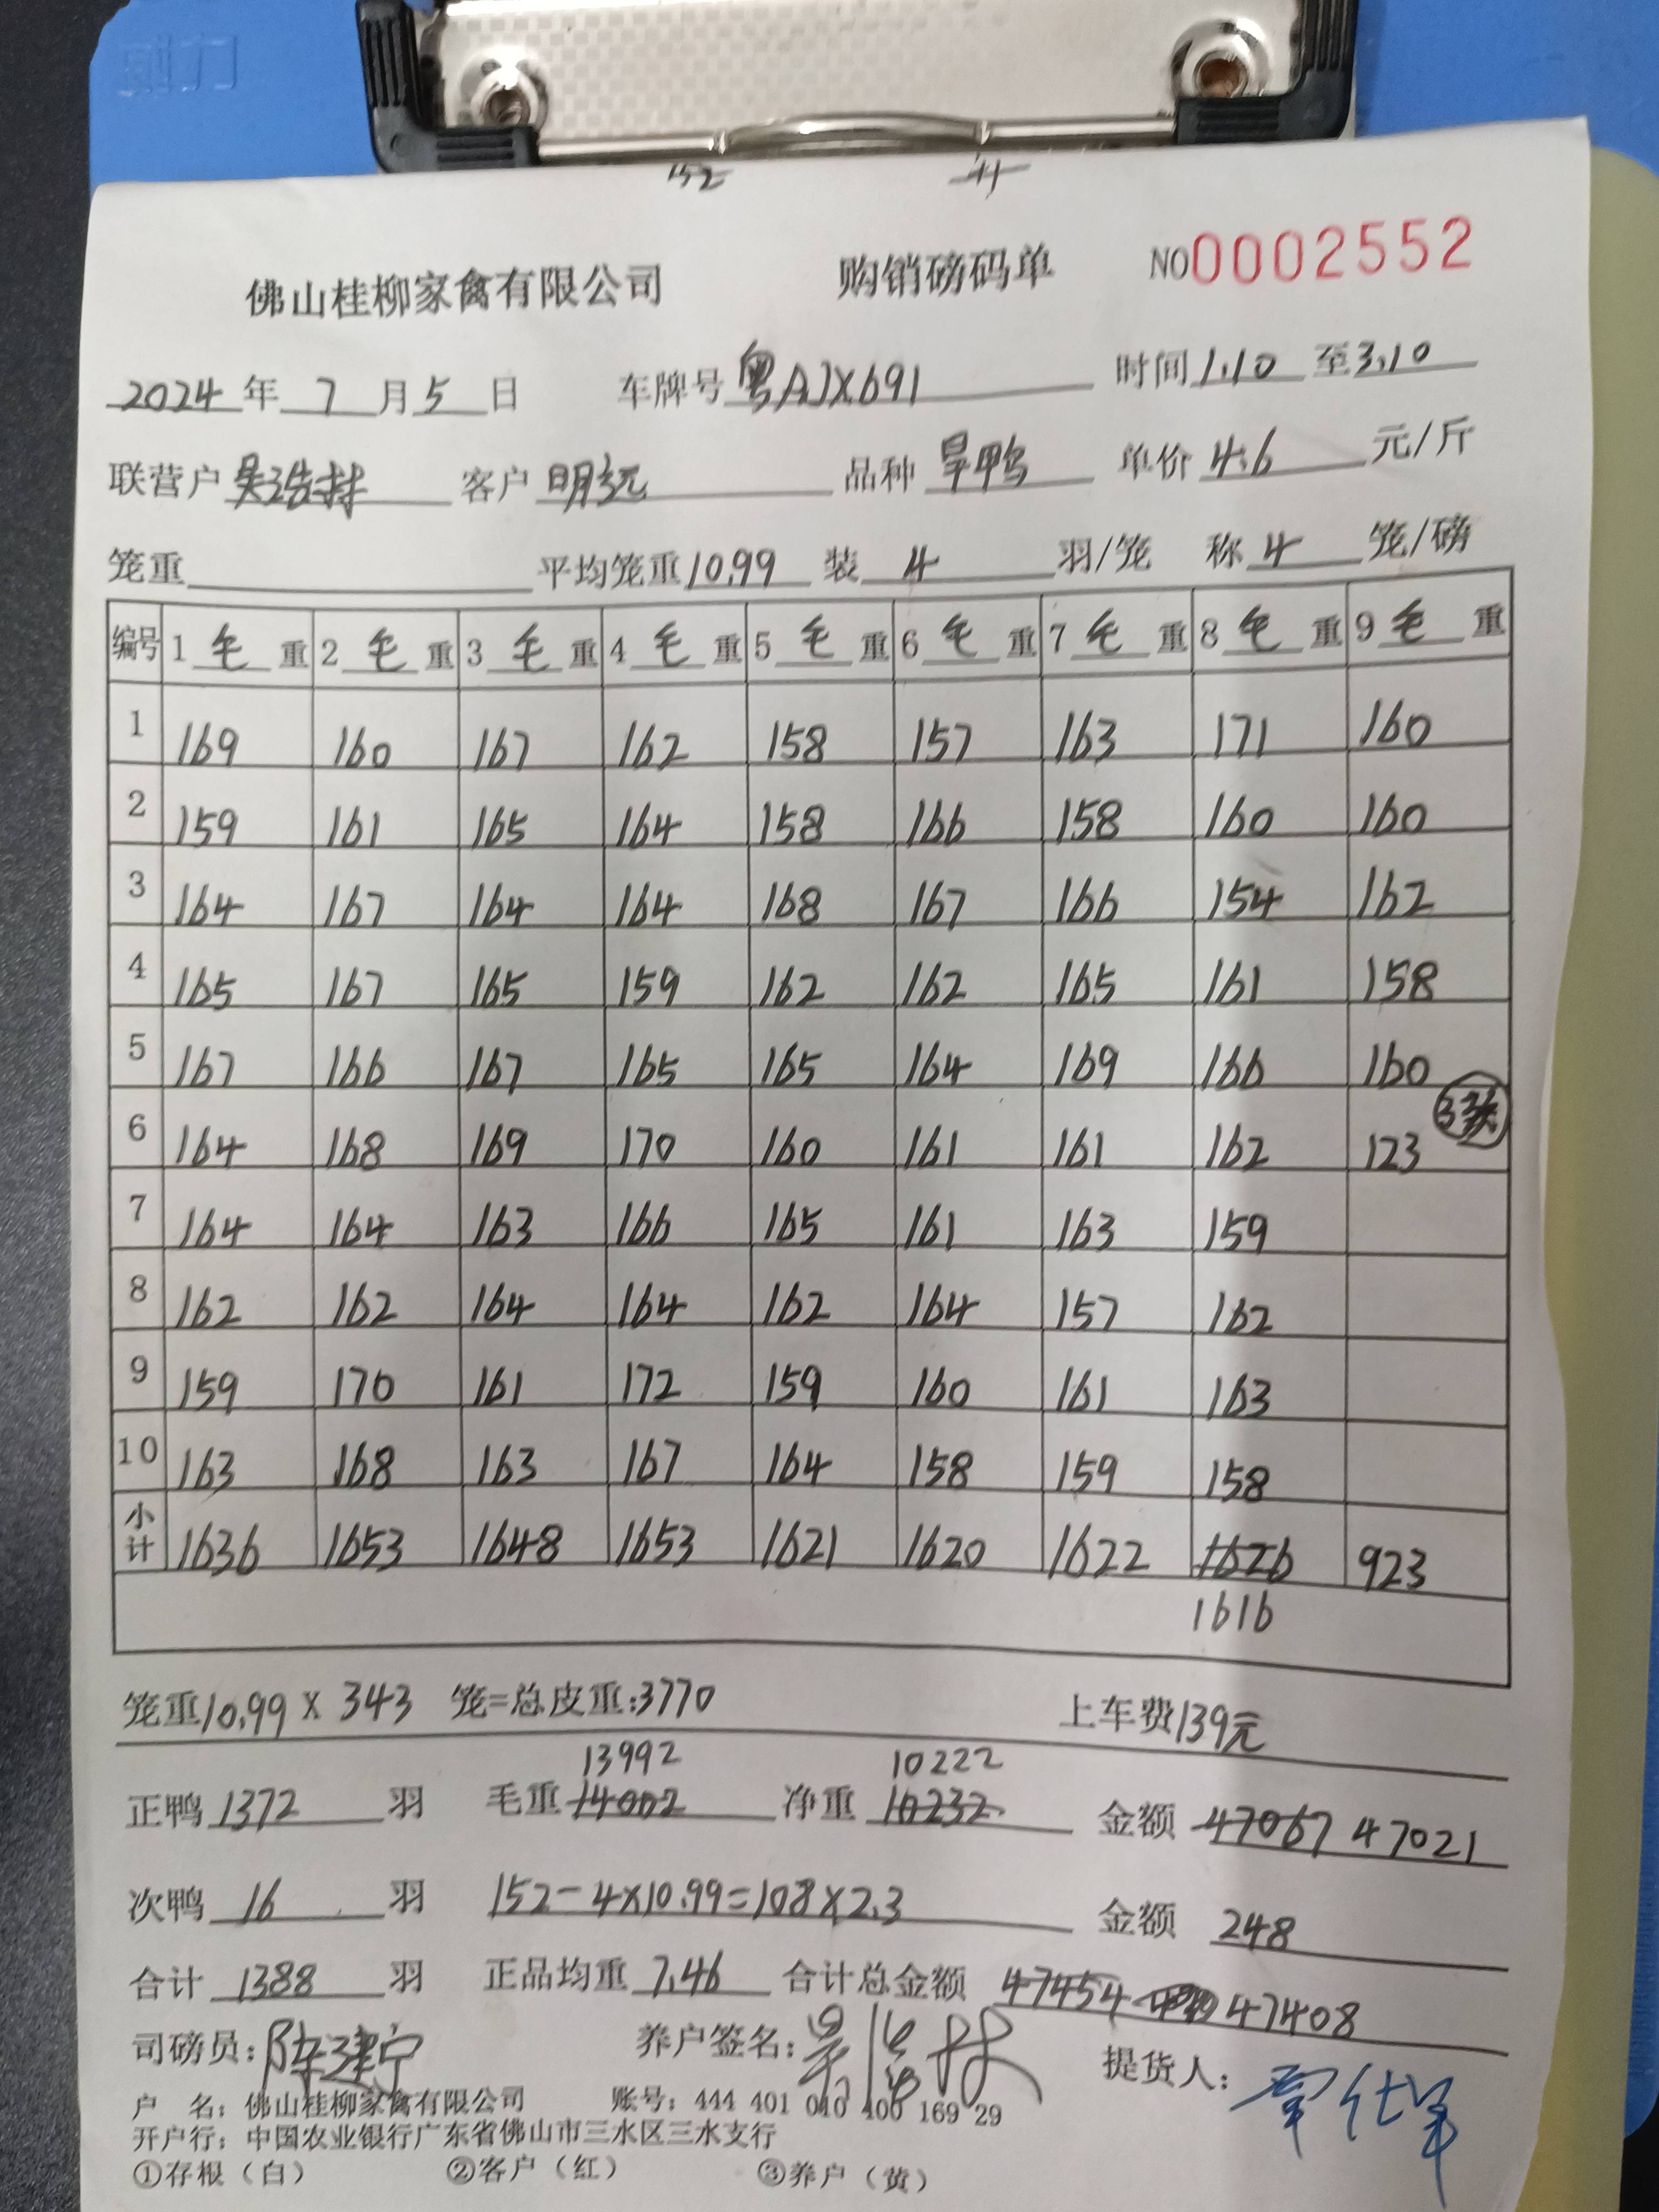 剑力
152 4
佛山桂柳家禽有限公司 购销磅码单 NO0002552
2024年7月5日 车牌号粤AJX691 时间1.10至3.10
联营户吴浩林 客户明远 品种旱鸭 单价4.6元/斤
笼重 平均笼重10.99 装4羽/笼 称4笼/磅
编号 1毛重 2毛重 3毛重 4毛重 5毛重 6毛重 7毛重 8毛重 9毛重
1 169 160 167 162 158 157 163 171 160
2 159 161 165 164 158 166 158 160 160
3 164 167 164 164 168 167 166 154 162
4 165 167 165 159 162 162 165 161 158
5 167 166 167 165 165 164 169 166 160
6 164 168 169 170 160 161 161 162 123 3笼
7 164 164 163 166 165 161 163 159
8 162 162 164 164 162 164 157 162
9 159 170 161 172 159 160 161 163
10 163 168 163 167 164 158 159 158
小计 1636 1653 1648 1653 1621 1620 1622 1626 923
1616
笼重10.99X343笼=总皮重:3770 上车费139元
13992 10222
正鸭1372羽 毛重14002 净重10232 金额47067 47021
次鸭16羽 152-4×10.99=108×2.3 金额248
合计1388羽 正品均重7.46 合计总金额47454 47408
司磅员:陈建宁 养户签名:吴浩林 提货人:
户 名:佛山桂柳家禽有限公司 账号:444 401 040 400 169 29
开户行:中国农业银行广东省佛山市三水区三水支行
①存根(白) ②客户(红) ③养户(黄)